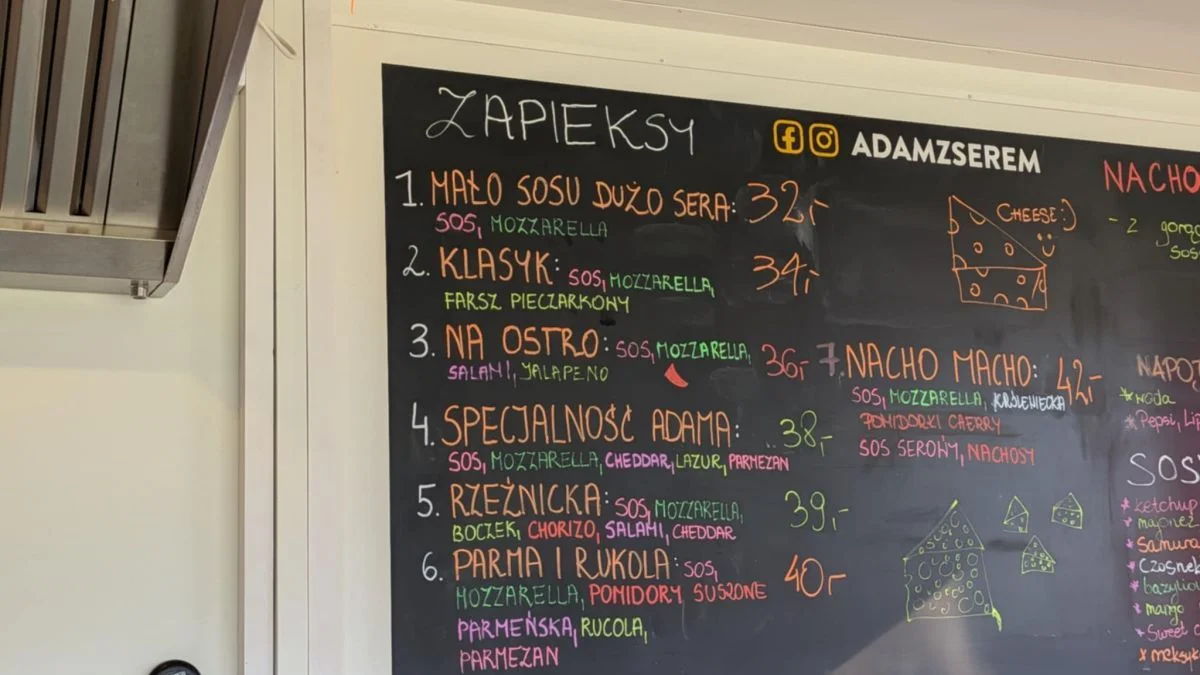 ZAPIEKSY
ADAMZSEREM
1. MAŁO SOSU DUŻO SERA: 32,-
SOS, MOZZARELLA
2. KLASYK: SOS, MOZZARELLA, 34,-
FARSZ PIECZARKOWY
3. NA OSTRO: SOS, MOZZARELLA, 36,-
SALAMI, JALAPENO
4. SPECJALNOŚĆ ADAMA: 38,-
SOS, MOZZARELLA, CHEDDAR, LAZUR, PARMEZAN
5. RZEŹNICKA: SOS, MOZZARELLA, 39,-
BOCZEK, CHORIZO, SALAMI, CHEDDAR
6. PARMA I RUKOLA: SOS, 40,-
MOZZARELLA, POMIDORY SUSZONE
PARMEŃSKA, RUCOLA,
PARMEZAN
CHEESE :)
7. NACHO MACHO: 42,-
SOS, MOZZARELLA, KRÓLEWIECKA
POMIDORKI CHERRY
SOS SEROWY, NACHOSY
NACHO
- 2
SOS
woda
Pepsi,
SOS
ketchup
majonez
Samura
mango
Sweet